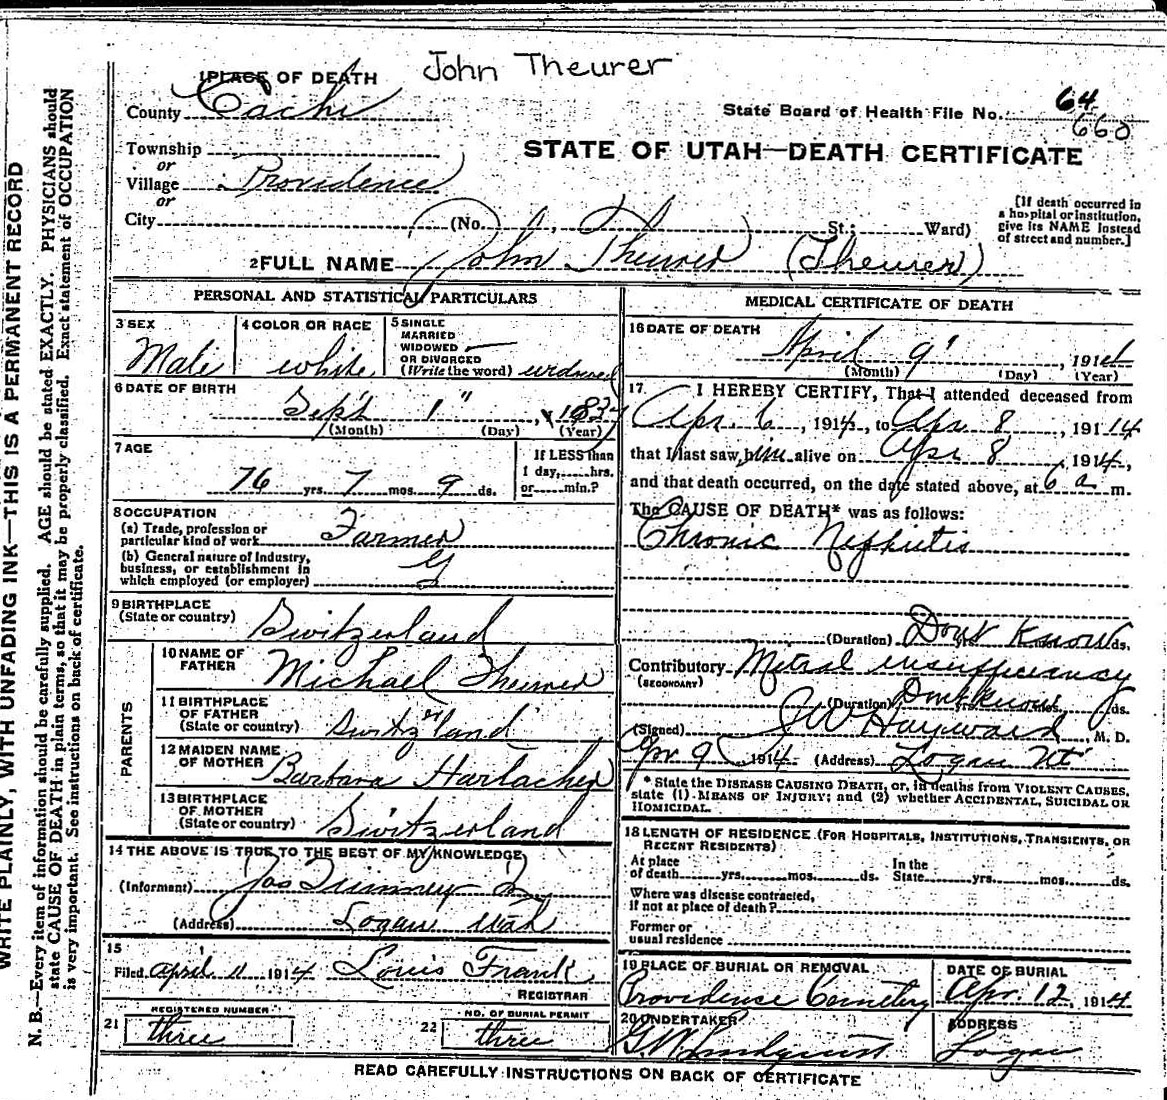 John Theurer
1 PLACE OF DEATH
County Cache
State Board of Health File No. 64
660
STATE OF UTAH—DEATH CERTIFICATE
Township
or
Village Providence
or
City (No. , St.; Ward)
[If death occurred in
a hospital or institution,
give its NAME instead
of street and number.]
2 FULL NAME John Theurer (Theurer)
PERSONAL AND STATISTICAL PARTICULARS
3 SEX
Male
4 COLOR OR RACE
white
5 SINGLE
MARRIED
WIDOWED
OR DIVORCED
(Write the word) widowed
6 DATE OF BIRTH
Sept 1"
(Month) (Day) (Year)
7 AGE
76 yrs. 7 mos. 9 ds.
If LESS than
1 day,......hrs.
or......min.?
8 OCCUPATION
(a) Trade, profession or
particular kind of work Farmer
(b) General nature of Industry,
business, or establishment in
which employed (or employer)
9 BIRTHPLACE
(State or country) Switzerland
PARENTS
10 NAME OF
FATHER Michael Theurer
11 BIRTHPLACE
OF FATHER
(State or country) Switz"land
12 MAIDEN NAME
OF MOTHER Barbara Harlacher
13 BIRTHPLACE
OF MOTHER
(State or country) Switzerland
14 THE ABOVE IS TRUE TO THE BEST OF MY KNOWLEDGE
(Informant) Jas Quinney Jr
(Address) Logan Utah
15
Filed April 11 1914 Louis Frank
REGISTRAR
REGISTERED NUMBER
21 three
NO. OF BURIAL PERMIT
22 three
MEDICAL CERTIFICATE OF DEATH
16 DATE OF DEATH
April 9" , 1914
(Month) (Day) (Year)
17 I HEREBY CERTIFY, That I attended deceased from
Apr. 6 , 1914, to Apr 8 , 191 14
that I last saw him alive on Apr 8 1914,
and that death occurred, on the date stated above, at 6 a m.
The CAUSE OF DEATH* was as follows:
Chronic Nephritis
(Duration) Dont Know ds.
Contributory Mitral insufficiency
(SECONDARY)
(Duration) Dont Know yrs. mos. ds.
(Signed) J W Hayward , M. D.
Apr 9 1914 (Address) Logan Ut
* State the DISEASE CAUSING DEATH, or, in deaths from VIOLENT CAUSES,
state (1) MEANS OF INJURY; and (2) whether ACCIDENTAL, SUICIDAL OR
HOMICIDAL.
18 LENGTH OF RESIDENCE (FOR HOSPITALS, INSTITUTIONS, TRANSIENTS, OR
RECENT RESIDENTS)
At place
of death yrs. mos. ds.
In the
State yrs. mos. ds.
Where was disease contracted,
if not at place of death?
Former or
usual residence
19 PLACE OF BURIAL OR REMOVAL
Providence Cemetery
DATE OF BURIAL
Apr. 12, 1914
20 UNDERTAKER
G W Lindquist
ADDRESS
Logan
READ CAREFULLY INSTRUCTIONS ON BACK OF CERTIFICATE
WRITE PLAINLY, WITH UNFADING INK—THIS IS A PERMANENT RECORD
N. B.—Every item of information should be carefully supplied. AGE should be stated EXACTLY. PHYSICIANS should
state CAUSE OF DEATH in plain terms, so that it may be properly classified. Exact statement of OCCUPATION
is very important. See instructions on back of certificate.